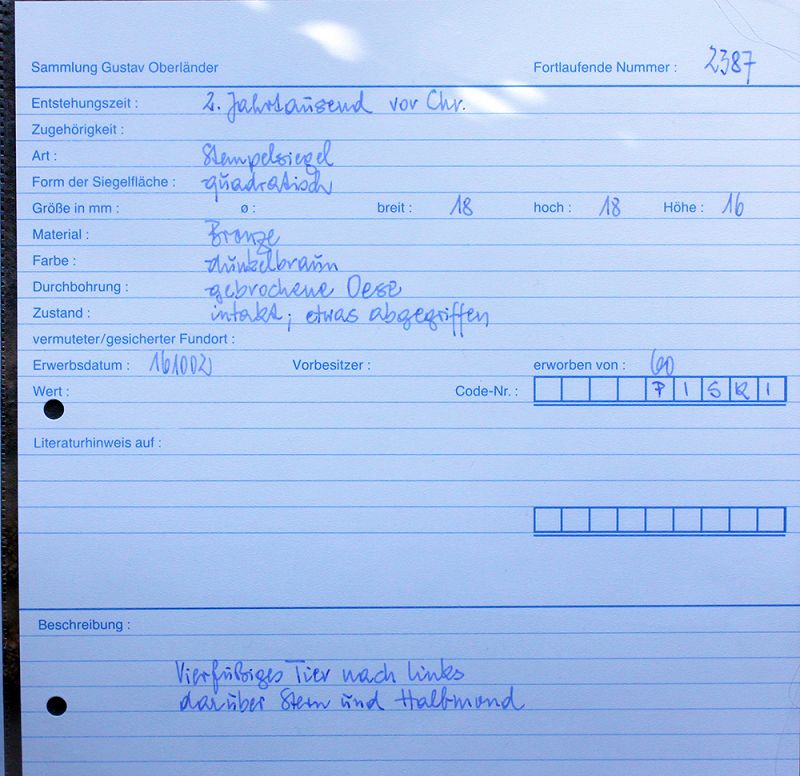 Sammlung Gustav Oberländer Fortlaufende Nummer : 2387
Entstehungszeit : 2. Jahrtausend vor Chr.
Zugehörigkeit :
Art : Stempelsiegel
Form der Siegelfläche : quadratisch
Größe in mm : ø : breit : 18 hoch : 18 Höhe : 16
Material : Bronze
Farbe : dunkelbraun
Durchbohrung : gebrochene Oese
Zustand : intakt; etwas abgegriffen
vermuteter/gesicherter Fundort :
Erwerbsdatum : Vorbesitzer : erworben von : 60
Wert : Code-Nr. :
Literaturhinweis auf :
Beschreibung :
Vierfüßiges Tier nach links
darüber Stern und Halbmond